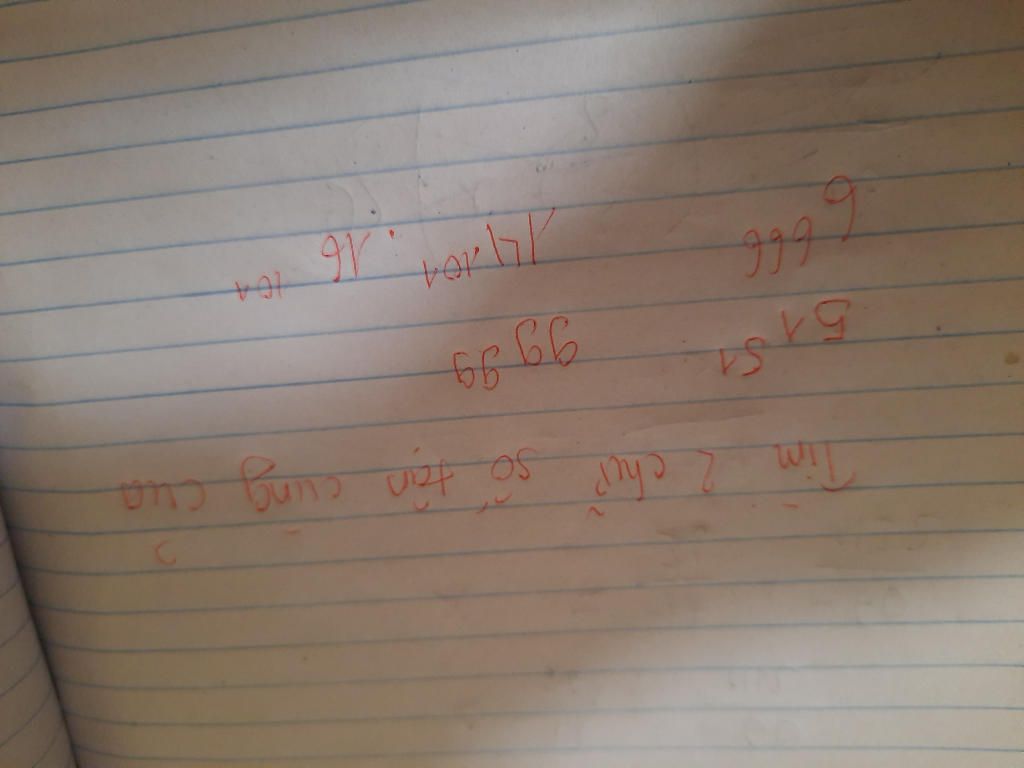 Tìm 2 chữ số tận cùng của
51^51 99^99
6^666 14^101 . 16^101